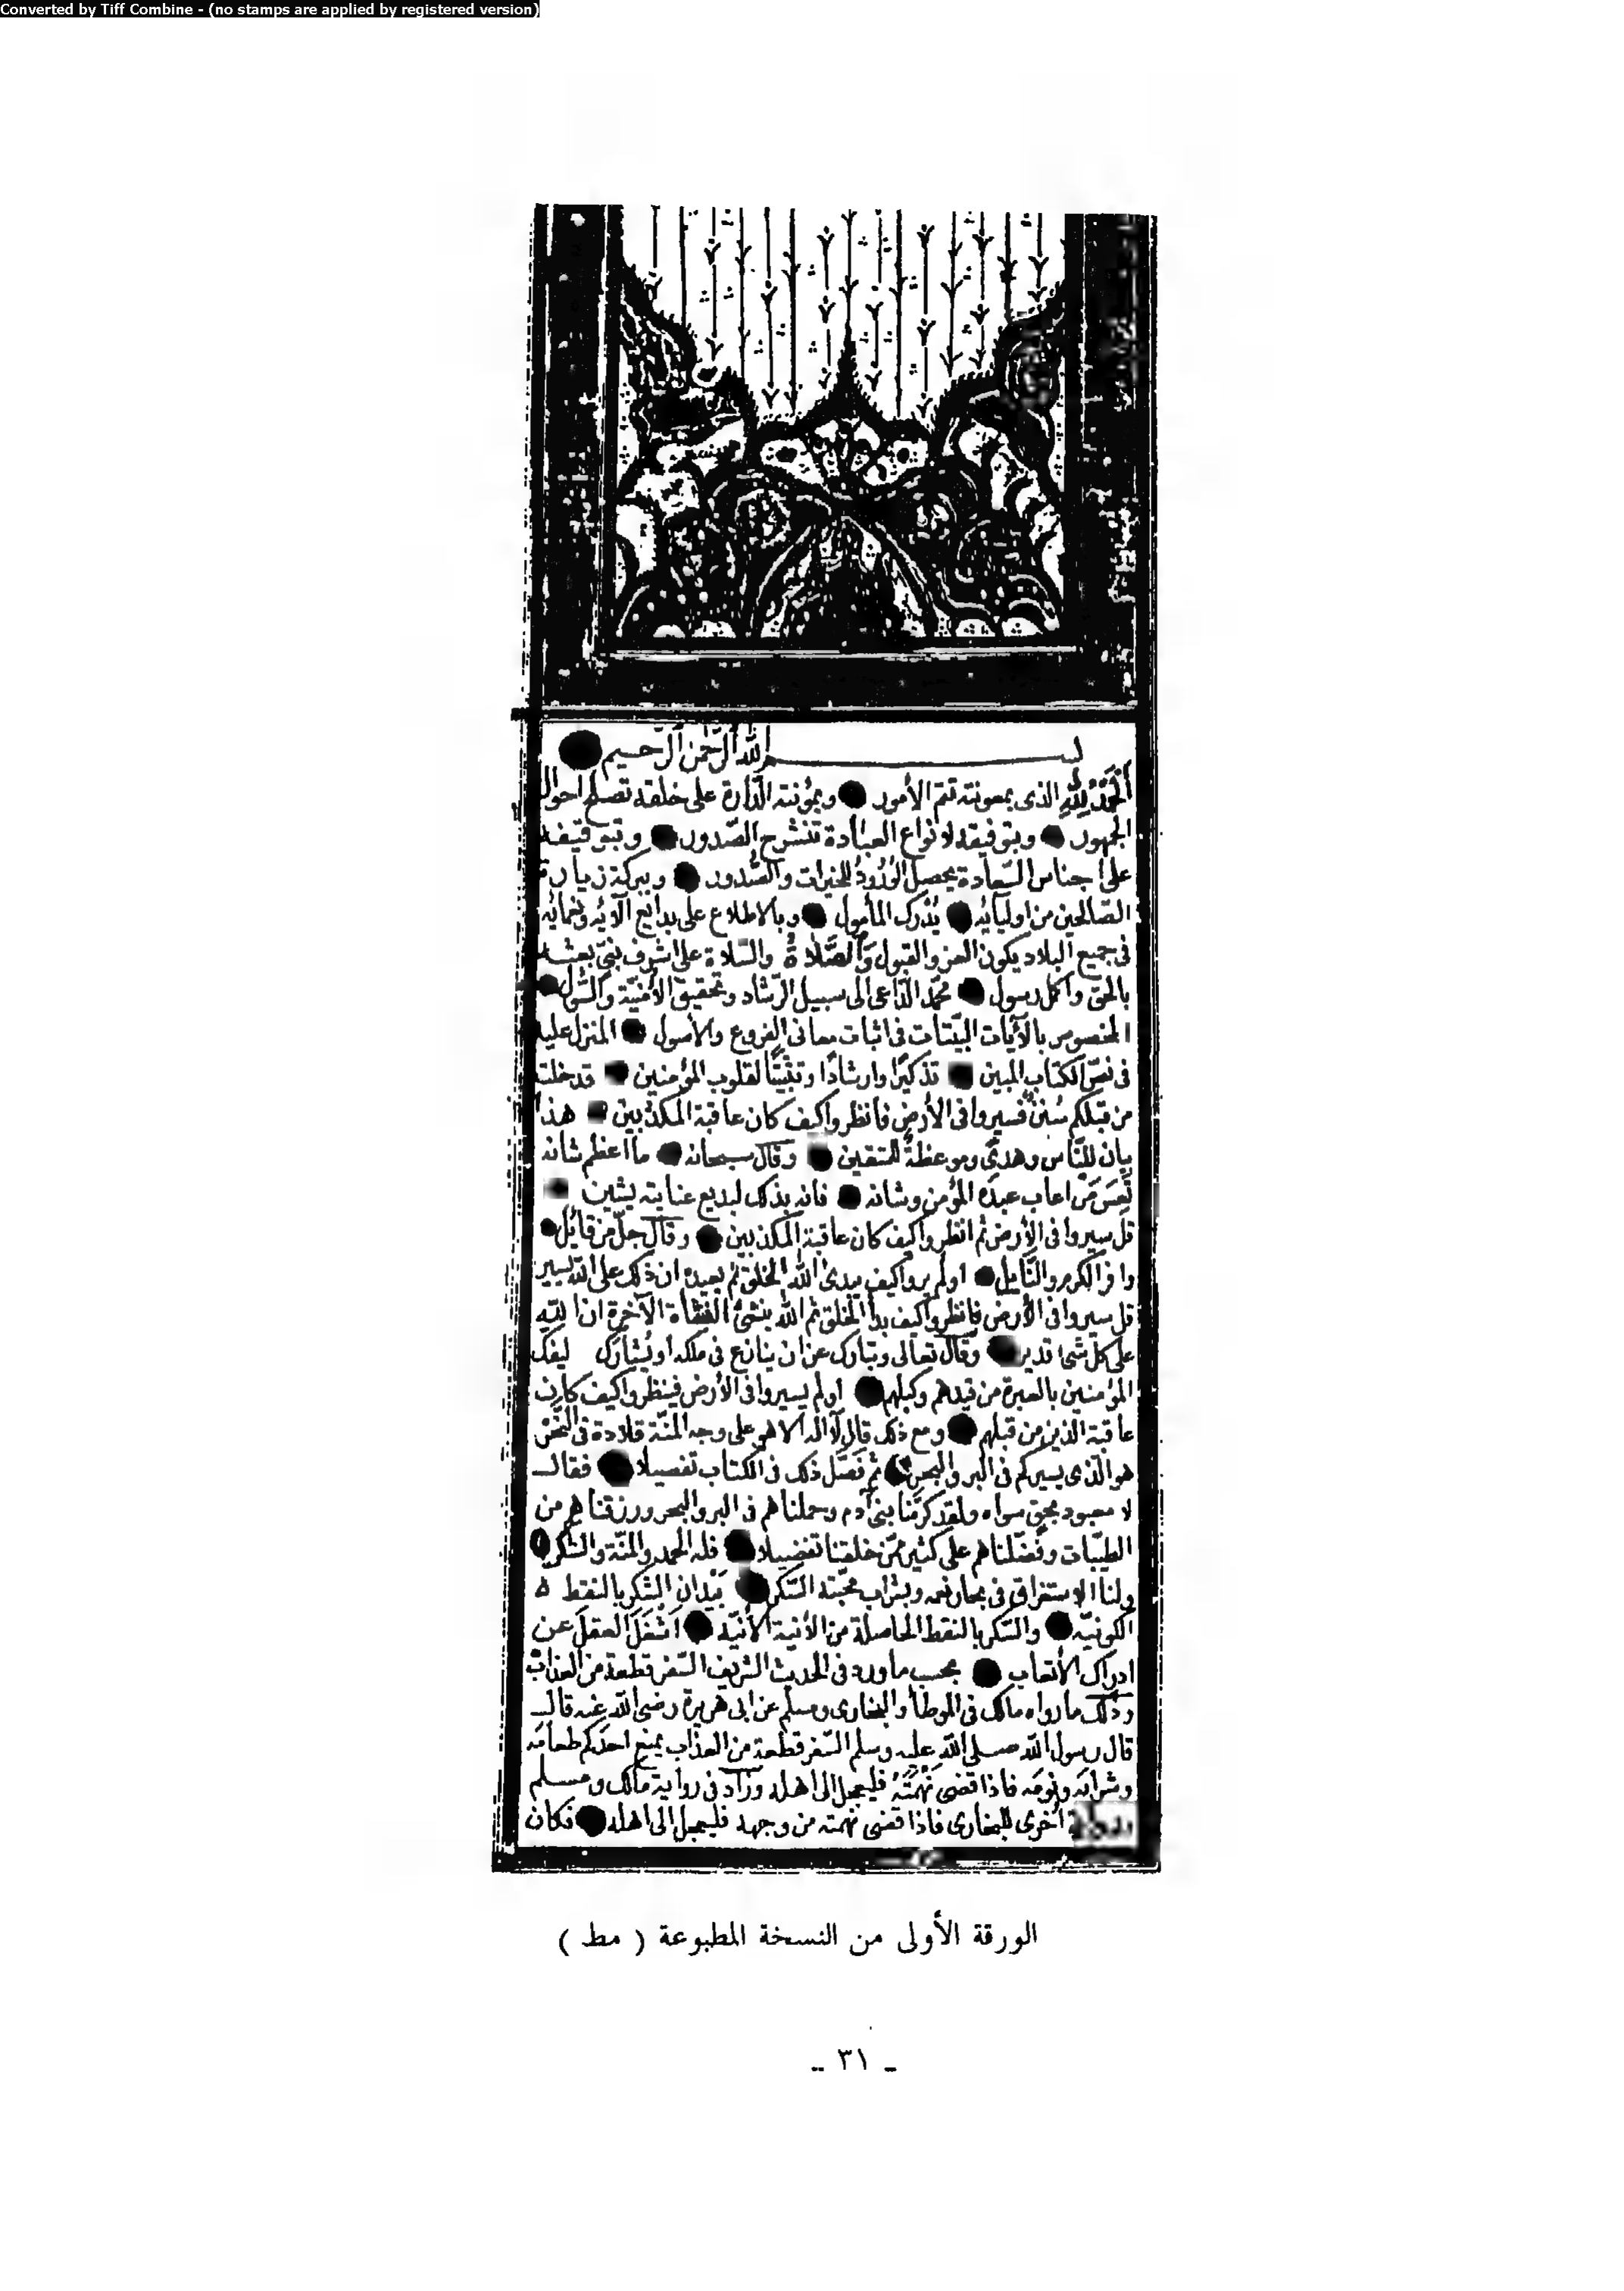 Converted by Tiff Combine - (no stamps are applied by registered version)
بسم الله الرحمن الرحيم
اَلْحَمْدُ لِلّٰهِ الذى بمعونته تتم الأمور وبمؤنته الدّارة على خلقه تصلح احوال
الجمهور وبتوفيقه لانواع العبادة تنشرح الصّدور وبتوقيفه
على اجناس السّعادة يحصل الوُرُودُ للخيرات والصُّدور وببركة زيارة
الصّالحين من اوليآئه يُدْرك المأمول وبالاطلاع على بدايع آلائه ونعمائه
فى جميع البلاد يكون العز والقبول وَالصَّلَاةُ والسّلام على اشرف نبىّ بعثه
بالحق واكمل رسول محمّد الدّاعى الى سبيل الرّشاد وتحقيق الأمنيّة والسُّول
المخصوص بالآيات البيّنات فى اثبات معانى الفروع والأصول المنزل عليه
فى نصّ الكتاب المبين تذكيرًا وارشادًا وتثبيتًا لقلوب المؤمنين قد خلت
من قبلكم سُننٌ فسيروا فى الأرض فانظروا كيف كان عاقبة المكذبين هذا
بيان للنّاس وهدىً وموعظةٌ للمتقين وقال سبحانه ما اعظم شانه
تَعِسَ مَن اعاب عبدَه المؤمن وشانه فانه بذلك لبديع عنايته يشين
قل سيروا فى الأرض ثم انظروا كيف كان عاقبة المكذبين وقال جلّ من قائل
وافر الكرم والنّايل اولم يروا كيف يبدئ الله الخلق ثم يعيده ان ذلك على الله يسير
قل سيروا فى الأرض فانظروا كيف بدأ الخلق ثم الله ينشئ النشأة الآخرة ان الله
على كل شئ قدير وقال تعالى وتبارك عن ان ينازع فى ملكه او يُشارك ليفك
المؤمنين بالعبرة من قيدهم وكبلهم اولم يسيروا فى الأرض فينظروا كيف كان
عاقبة الذين من قبلهم ومع ذلك قال لآ اله الا هو على وجه المنّة قلادة فى النّحر
هو الّذى يسيركم فى البر والبحر ثم فصّل ذلك فى الكتاب تفصيلا فقال
لا معبود بحق سواه ولقد كرّمنا بنى آدم وحملناهم فى البر والبحر ورزقناهم من
الطيّبات وفضّلناهم على كثير ممّن خلقنا تفضيلا فله الحمد والمنّة والشكر
ولنا الاستغراق فى بحار نعمه وبشراب محبّته السّكر بَيْدان الشكر بالنقط
الكونيّه والسّكر بالنقط الحاصلة من الأنية الأنيّه اَشْغَلَ العقلَ عن
ادراك الأتعاب بحسب ما ورد فى الحديث الشريف السّفر قطعة من العذاب
وذلك ما رواه مالك فى الموطأ والبخارى ومسلم عن ابى هريرة رضى الله عنه قال
قال رسول الله صلى الله عليه وسلم السّفر قطعة من العذاب يمنع احدَكم طعامَه
وشرابَه ونومَه فاذا قضى نَهْمَتَهُ فليعجل الى اهله وزاد فى رواية مالك ومسلم
أخرى للبخارى فاذا قضى نهمته من وجهه فليعجل الى اهله فكان
الورقة الأولى من النسخة المطبوعة ( مط )
ـ ٣١ ـ